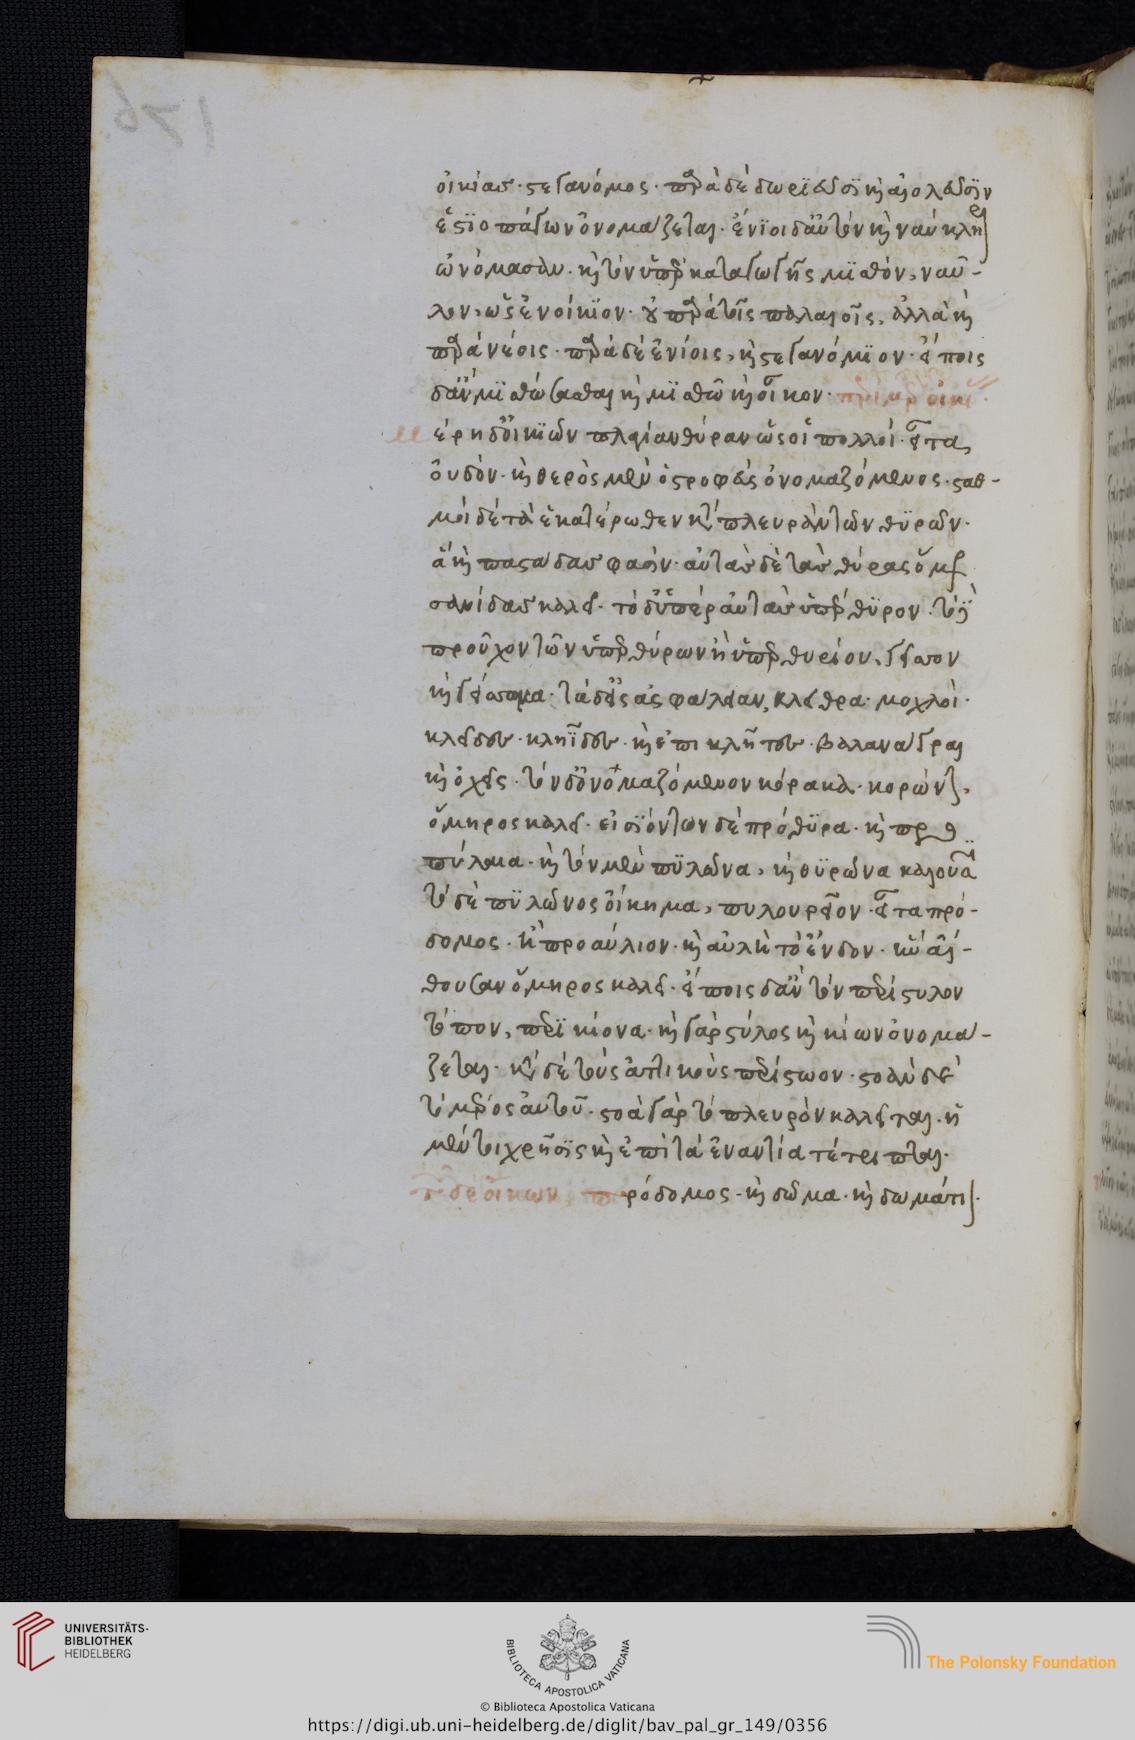 οἰκίας · στεγανόμος · παρὰ δὲ δωριεῦσι καὶ αἰολεῦσιν
ἑστιοπάμων ὀνομάζεται · ἔνιοι δ' αὐτὸν καὶ ναύκληρον
ὠνόμασαν · καὶ τὸν ὑπὲρ καταγωγῆς μισθόν, ναῦ-
λον, ὡς ἐνοίκιον · οὐ παρὰ τοῖς παλαιοῖς, ἀλλὰ καὶ
παρὰ νέοις · παρὰ δὲ ἐνίοις, καὶ στεγανόμιον · εἴποις
δ' ἂν μισθώσασθαι καὶ μισθῶσαι οἶκον · περὶ μερῶν οἰκίας ·
μέρη δ' οἰκιῶν πλησίαν θύραν ὡς οἱ πολλοί · εἶτα,
οὐδὸν · καὶ θερὸς μὲν ὁ στροφεὺς ὀνομαζόμενος · σταθ-
μοὶ δὲ τὰ ἑκατέρωθεν κατὰ πλευρὰν τῶν θυρῶν ·
ἃ καὶ παραστάδας φασίν · αὐτὰς δὲ τὰς θύρας ὅμηρος
σανίδας καλεῖ · τὸ δ' ὑπὲρ αὐτὰς ὑπέρθυρον · τὸ δὲ
προῦχον τῶν ὑπερθύρων ἢ ὑπερθυρίον, γεῖσον
καὶ γείσωμα · τὰ δ' εἰς ἀσφάλειαν, κλεῖθρα · μοχλοὶ ·
κλεῖδες · κληῖδες · καὶ ἐπιβλῆτες · βαλανάγραι
καὶ ὀχεῖς · τὸν δ' ὀνομαζόμενον κόρακα · κορώνην,
ὅμηρος καλεῖ · εἰσιόντων δὲ πρόθυρα · καὶ προ
πύλαια · καὶ τὸν μὲν πυλῶνα, καὶ θυρῶνα καλοῦσι
τὸ δὲ πυλῶνος οἴκημα, πυλουρεῖον · εἶτα πρό-
δομος · καὶ προαύλιον · καὶ αὐλὴ τὸ ἔνδον · ἣν αἴ-
θουσαν ὅμηρος καλεῖ · εἴποις δ' ἂν τὸν περίστυλον
τόπον, περικίονα · καὶ γὰρ στύλος καὶ κίων ὀνομά-
ζεται · κατὰ δὲ τοὺς ἀττικοὺς περίστωον · στοὰν δὲ
τὸ μέρος αὐτοῦ · στοὰ γὰρ τὸ πλευρὸν καλεῖται · ἡ
μέντοι χρῆσις καὶ ἐπὶ τὰ ἐναντία τέτριπται ·
τῶν δὲ οἴκων, πρόδομος · καὶ δῶμα · καὶ δωμάτιον ·
UNIVERSITÄTS-
BIBLIOTHEK
HEIDELBERG
BIBLIOTECA APOSTOLICA VATICANA
The Polonsky Foundation
© Biblioteca Apostolica Vaticana
https://digi.ub.uni-heidelberg.de/diglit/bav_pal_gr_149/0356